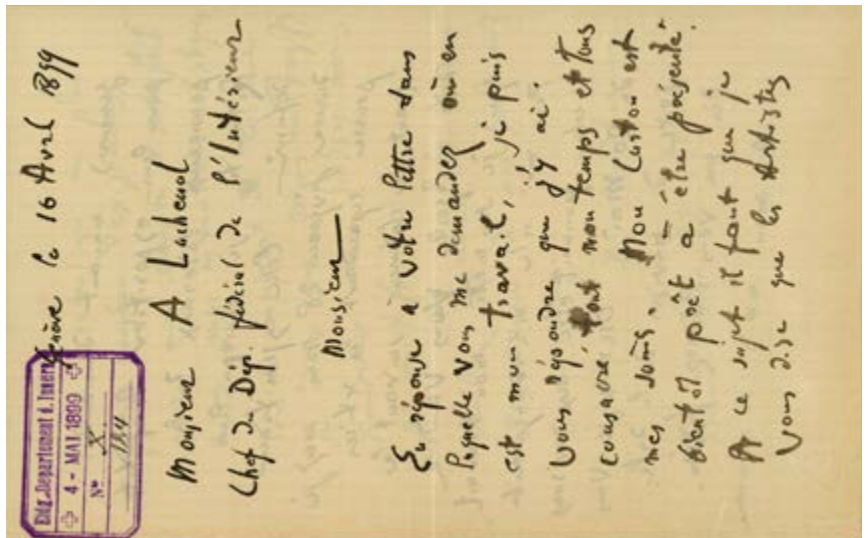 Genève le 16 Avril 1899
Eidg. Departement d. Innern
4 - MAI 1899
No X.
184
Monsieur A Lachenal
Chef du Dép. fédéral de l'Intérieur
Monsieur
En réponse a votre lettre dans
laquelle vous me demandez où en
est mon travail, je puis
vous répondre que j'y ai
consacré tout mon temps et tous
mes soins. Mon Carton est
bientot prêt a être présenté.
A ce sujet il faut que je
vous dise que les Artistes